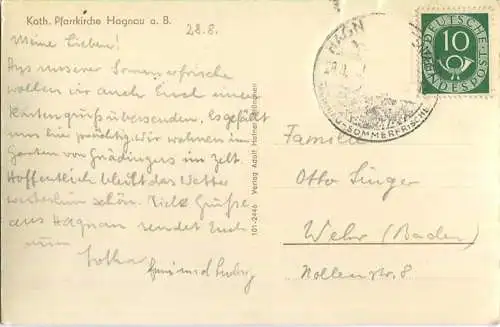 Kath. Pfarrkirche Hagnau a. B.
28.8.
Meine Lieben!
Aus unserer Sommerfrische
wollen wir auch Euch einen
Kartengruß übersenden. Es gefällt
uns hier prächtig. Wir wohnen im
Garten von im Zelt.
Hoffentlich bleibt das Wetter
weiterhin schön. Viele Grüße
aus Hagnau sendet Euch
Lothar
101-2446 Verlag Adolf
HAGN
SOMMERFRISCHE
DEUTSCHE
BUNDESPOST
10
Familie
Otto Singer
Wehr (Baden)
Nollenstr. 8